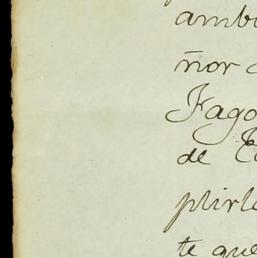 amb
ñor
Fago
de E
plirl
te que